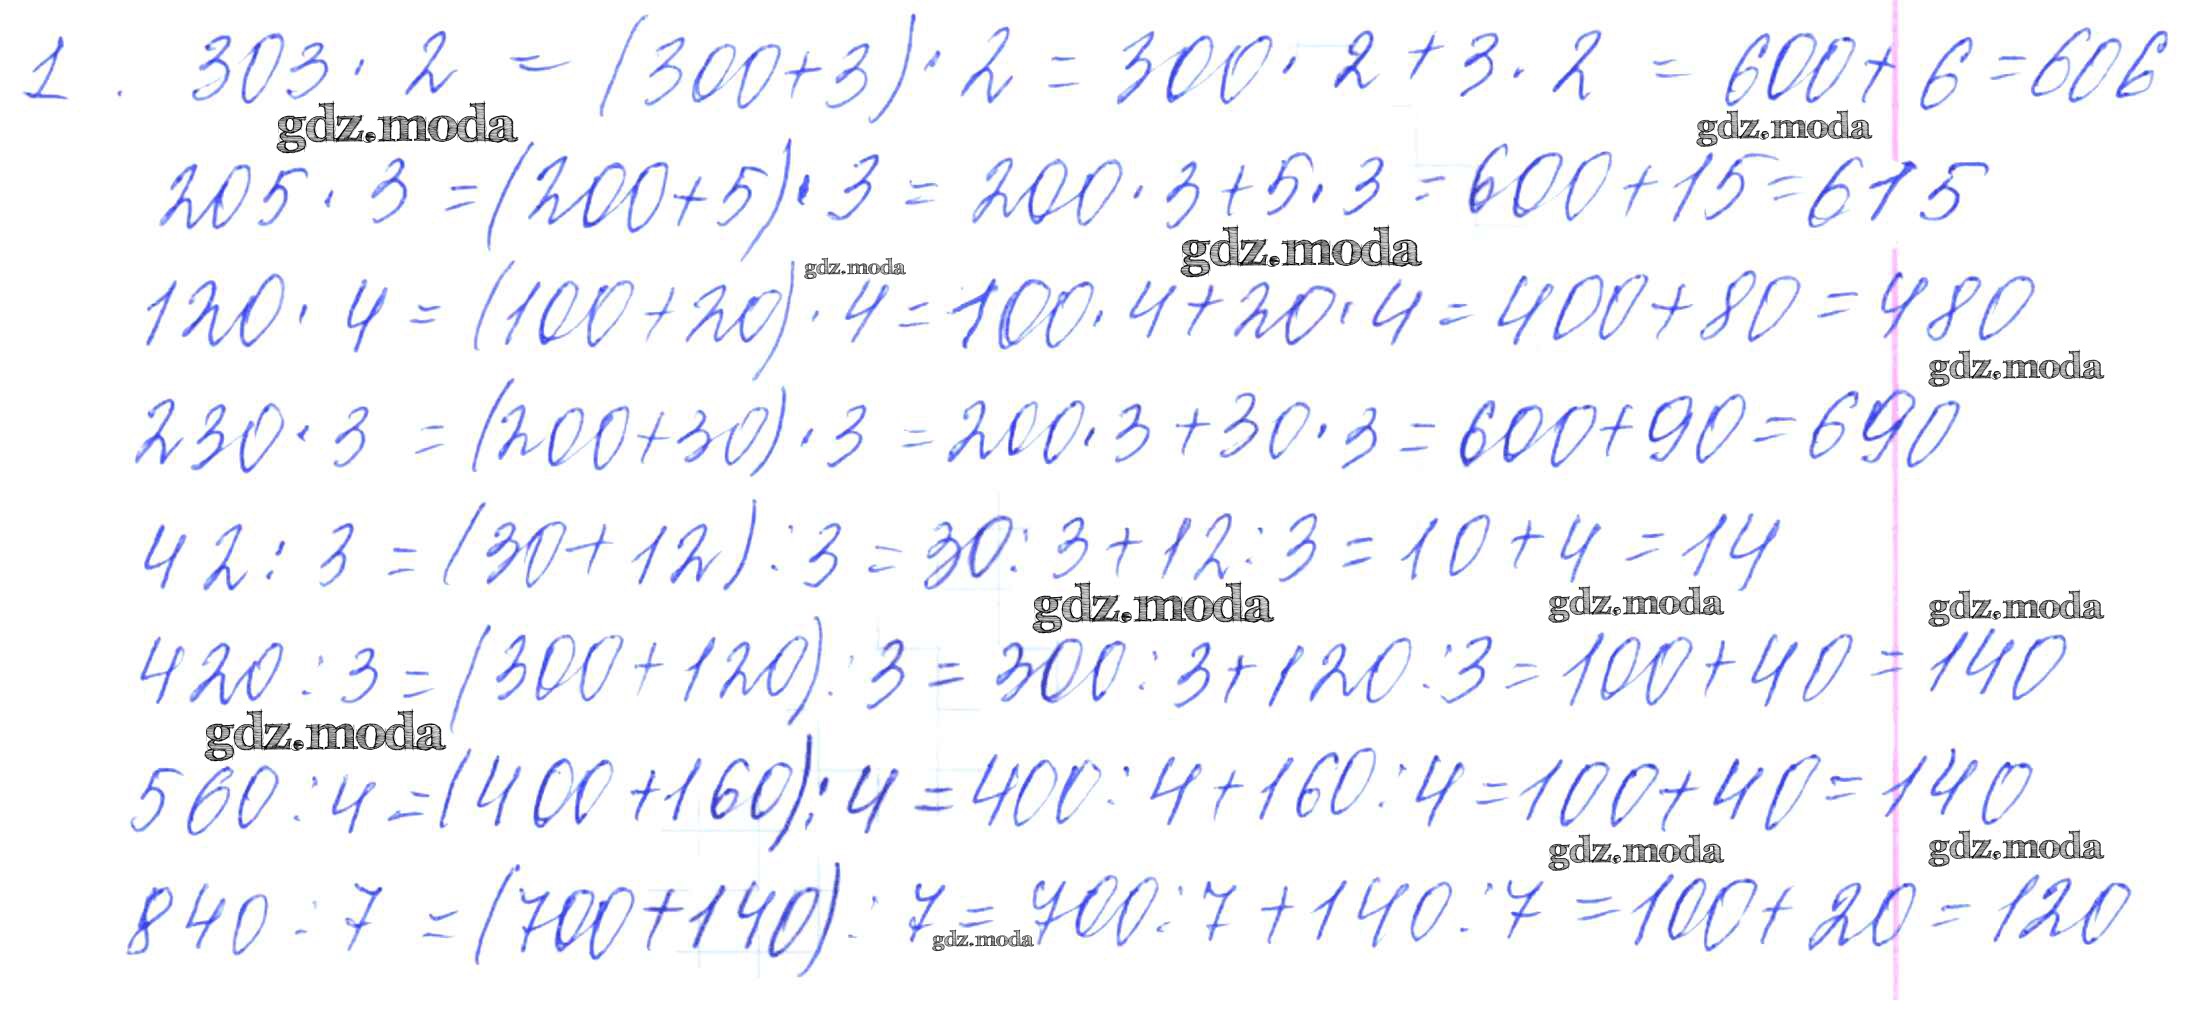 1. 303 · 2 = (300+3) · 2 = 300 · 2 + 3 · 2 = 600 + 6 = 606
gdz.moda gdz.moda
205 · 3 = (200+5) · 3 = 200 · 3 + 5 · 3 = 600 + 15 = 615
gdz.moda gdz.moda
120 · 4 = (100+20) · 4 = 100 · 4 + 20 · 4 = 400 + 80 = 480
gdz.moda
230 · 3 = (200+30) · 3 = 200 · 3 + 30 · 3 = 600 + 90 = 690
42 : 3 = (30+12) : 3 = 30 : 3 + 12 : 3 = 10 + 4 = 14
gdz.moda gdz.moda gdz.moda
420 : 3 = (300+120) : 3 = 300 : 3 + 120 : 3 = 100 + 40 = 140
gdz.moda
560 : 4 = (400+160) : 4 = 400 : 4 + 160 : 4 = 100 + 40 = 140
gdz.moda gdz.moda
840 : 7 = (700+140) : 7 = 700 : 7 + 140 : 7 = 100 + 20 = 120
gdz.moda